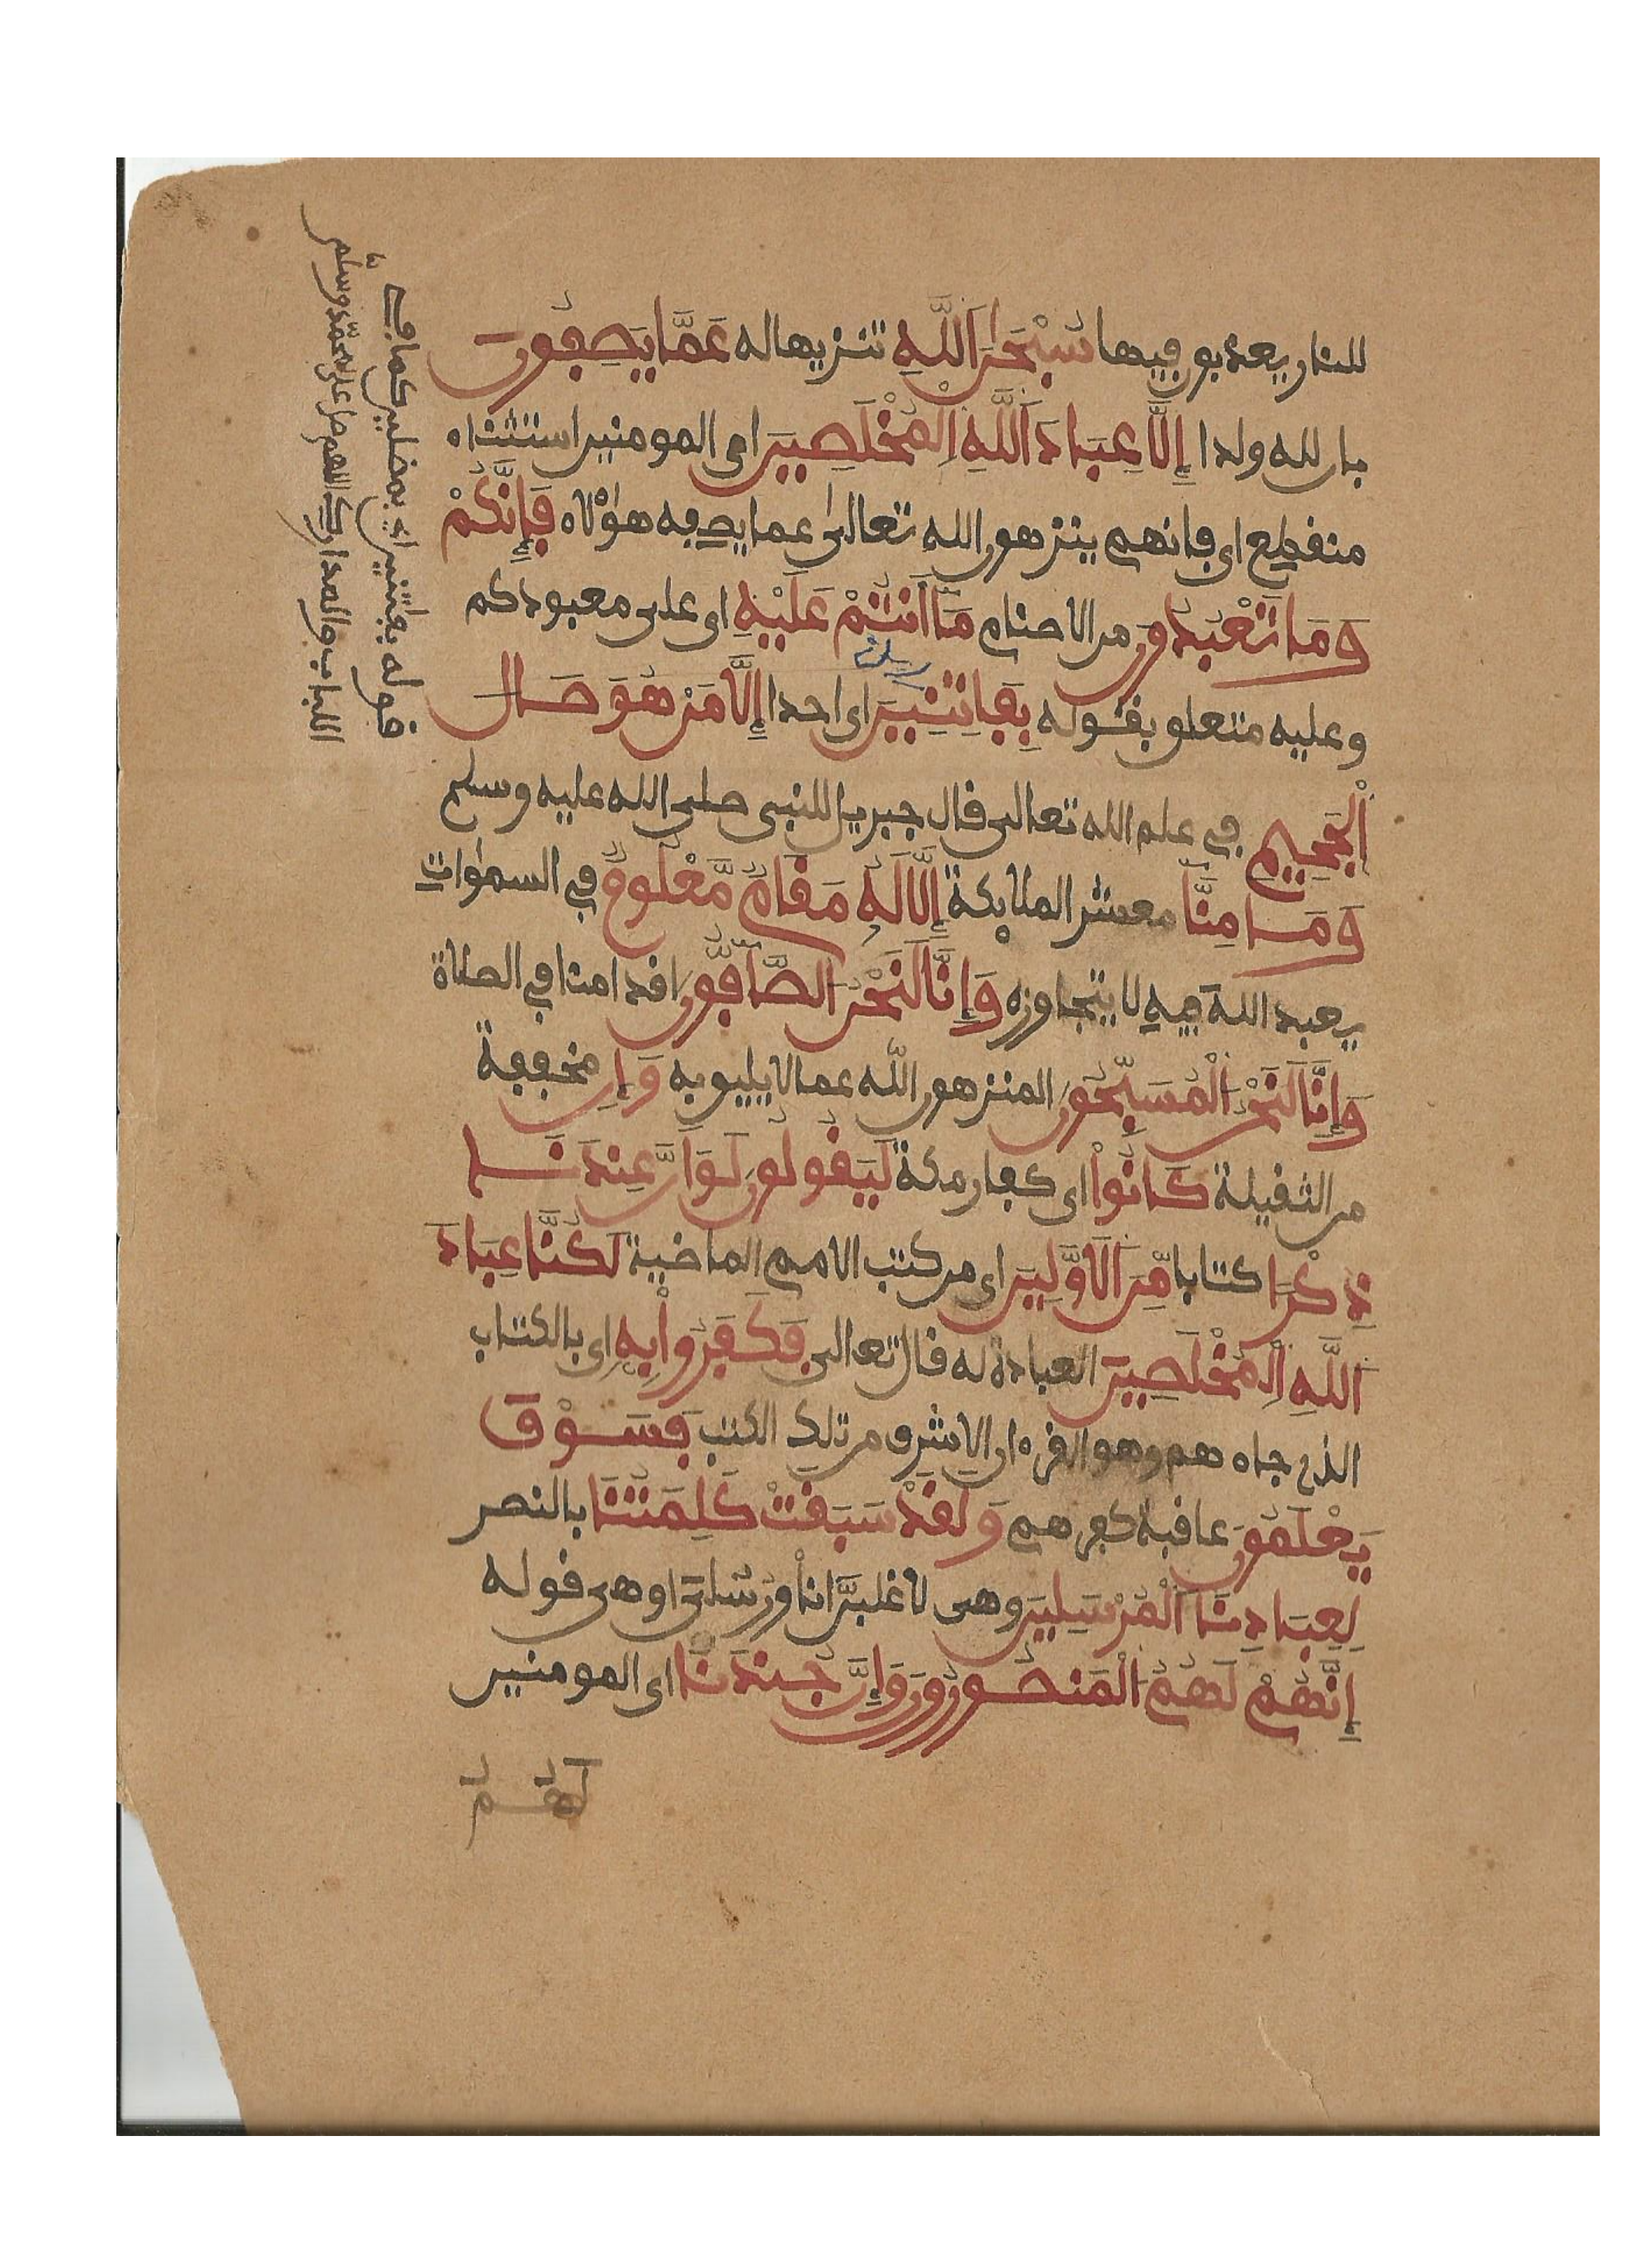 للنار يعذبون فيها سُبْحَٰنَ اَللَّهِ تنزيها له عَمَّا يَصِفُونَ
بان لله ولدا إِلَّا عِبَادَ اَللَّهِ اِلْمُخْلَصِينَ اى المومنين استثناء
منقطع اى فانهم ينزهون الله تعالىٰ عما يصفه هؤلاء فَإِنَّكُمْ
وَمَا تَعْبُدُونَ من الاصنام مَآ أَنتُمْ عَلَيْهِ اى على معبودكم
وعليه متعلق بقوله بِفَٰتِنِينَ اى احدا إِلَّا مَنْ هُوَ صَالِ
اِلْجَحِيمِ في علم الله تعالى قال جبريل للنبى صلى الله عليه وسلم
وَمَا مِنَّآ معشر الملائكة إِلَّا لَهُۥ مَقَامٞ مَّعْلُومٞ في السمٰوات
يعبد اللهَ فيهِ لا يتجاوزه وَإِنَّا لَنَحْنُ اُلصَّآفُّونَ اقدامنا في الصلاة
وَإِنَّا لَنَحْنُ اُلْمُسَبِّحُونَ المنزهون اللّه عما لا يليق به وَإِن مخففة
من الثقيلة كَانُواْ اى كفار مكة لَيَقُولُونَ لَوَ اَنَّ عِندَنَا
ذِكْرًا كتابا مِّنَ اَلَاوَّلِينَ اى من كتب الامم الماضية لَكُنَّا عِبَادَ
اَللَّهِ اِلْمُخْلَصِينَ العبادة له قال تعالى فَكَفَرُواْ بِهِۦ اى بالكتاب
الذى جاءهم وهو القرءان الاشرف من تلك الكتب فَسَوْفَ
يَعْلَمُونَ عاقبة كفرهم وَلَقَدْ سَبَقَتْ كَلِمَتُنَا بالنصر
لِعِبَادِنَا اَلْمُرْسَلِينَ وهى لَأغلبَنَّ أنا ورُسُلى او هى قوله
إِنَّهُمْ لَهُمُ اُلْمَنصُورُونَ وَإِنَّ جُندَنَا اى المومنين
لَهُمُ
قوله بفٰتنين اي بمضلين كما في
اللباب والمدارك اللهم صل على محمّد وسلم